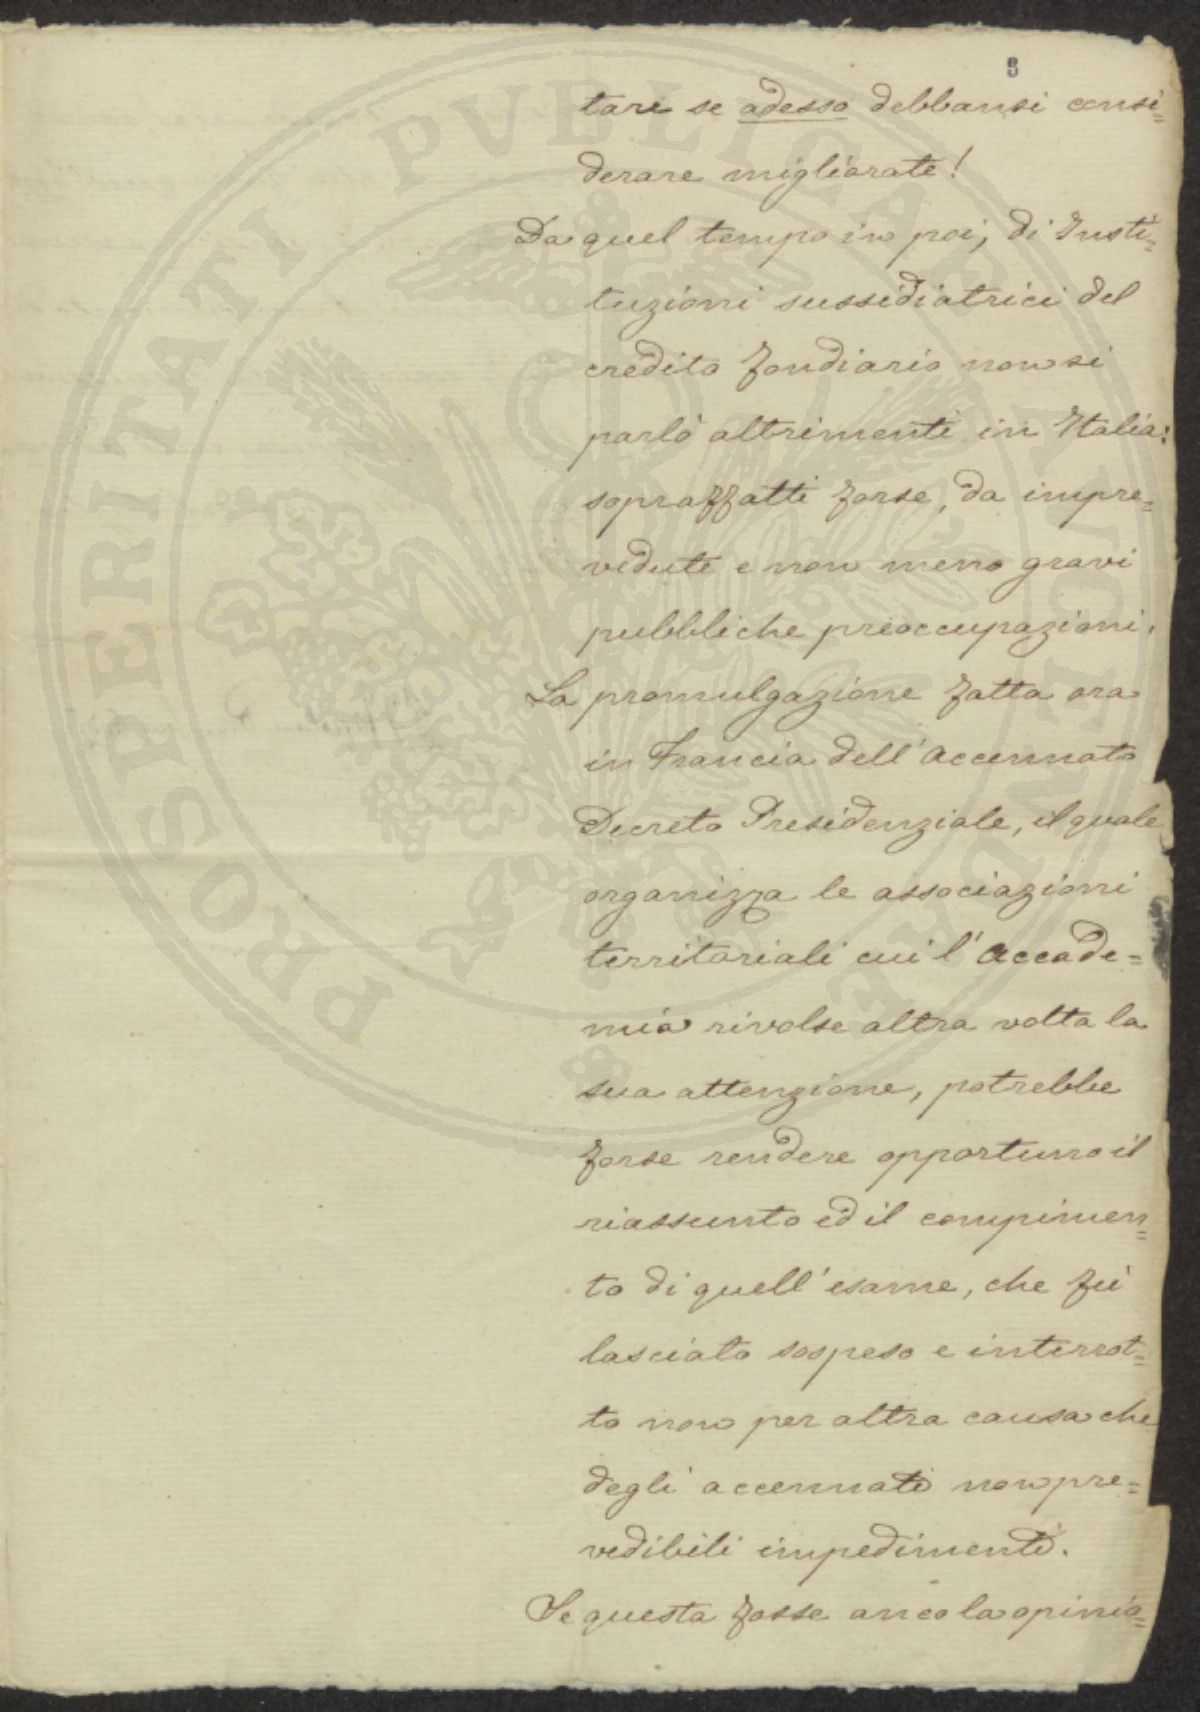 8
tare se adesso debbansi consi=
derare migliorate!
Da quel tempo in poi, di Insti=
tuzioni sussidiatrici del
credito fondiario non si
parlò altrimenti in Italia:
sopraffatti forse, da impre=
vedute e non meno gravi
pubbliche preoccupazioni.
La promulgazione fatta ora
in Francia dell'accennato
Decreto Presidenziale, il quale
organizza le associazioni
territoriali cui l'Accade=
mia rivolse altra volta la
sua attenzione, potrebbe
forse rendere opportuno il
riassunto ed il compimen=
to di quell'esame, che fù
lasciato sospeso e interrot=
to non per altra causa che
degli accennati non pre=
vedibili impedimenti.
Se questa fosse anco la opinio=
PROSPERITATI PVBLICAE AVGENDAE